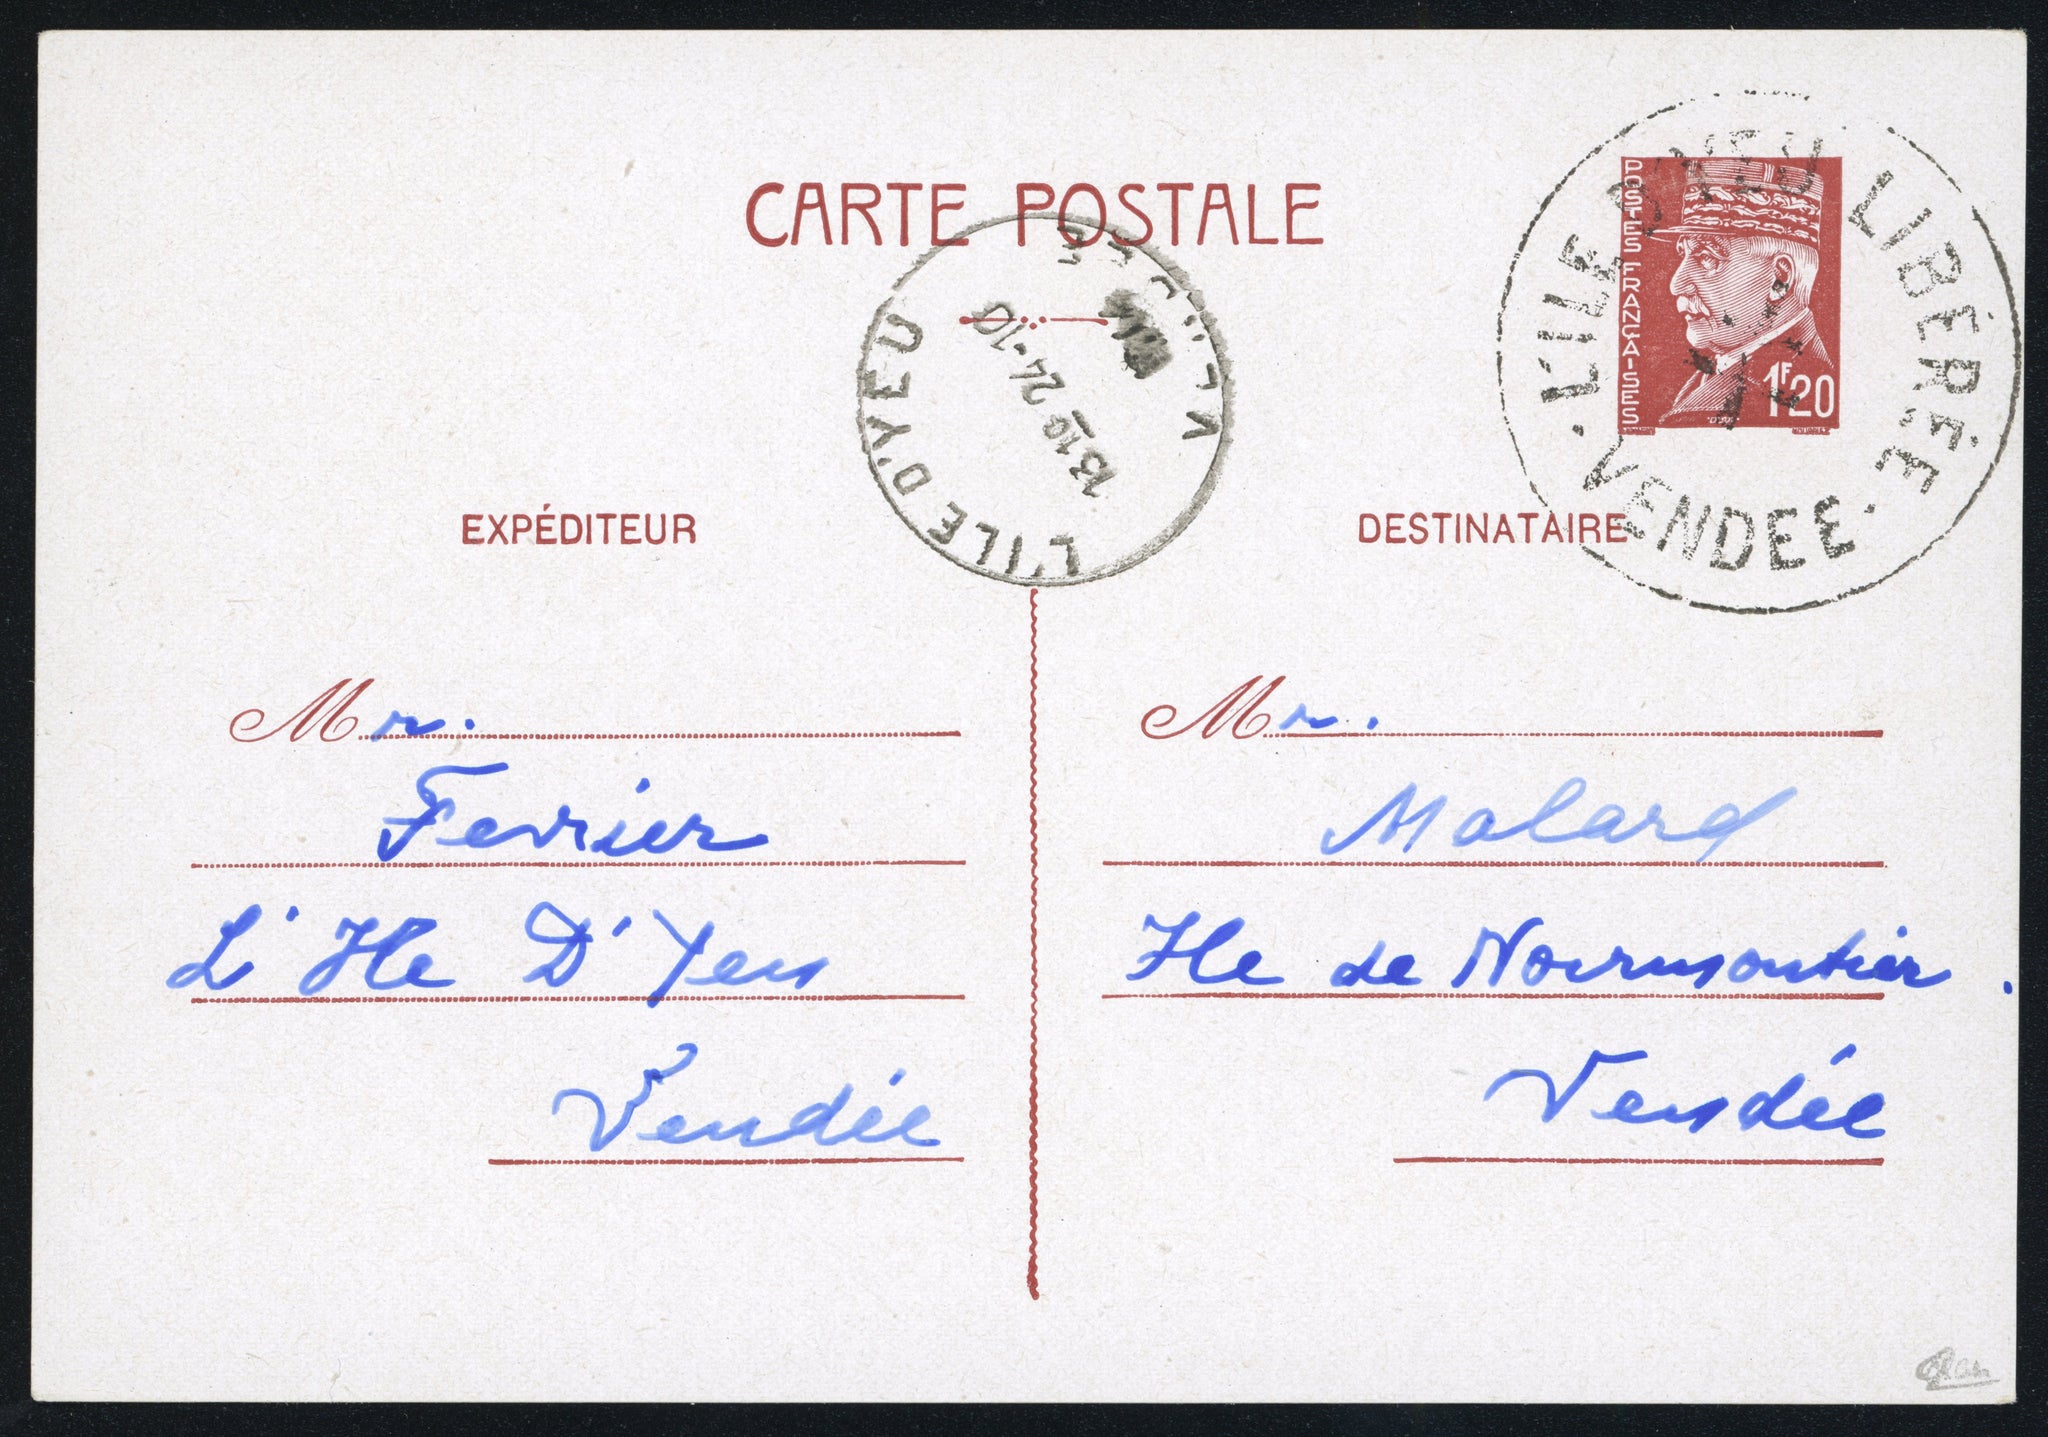 CARTE POSTALE
POSTES FRANÇAISES
1F20
L'ILE D'YEU LIBÉRÉE
· VENDEE ·
L'ILE D'YEU
13 10 24-10
EXPÉDITEUR
DESTINATAIRE
Mr.
Fevrier
L'Ile D'Yeu
Vendée
Mr.
Malard
Ile de Noirmoutier.
Vendée